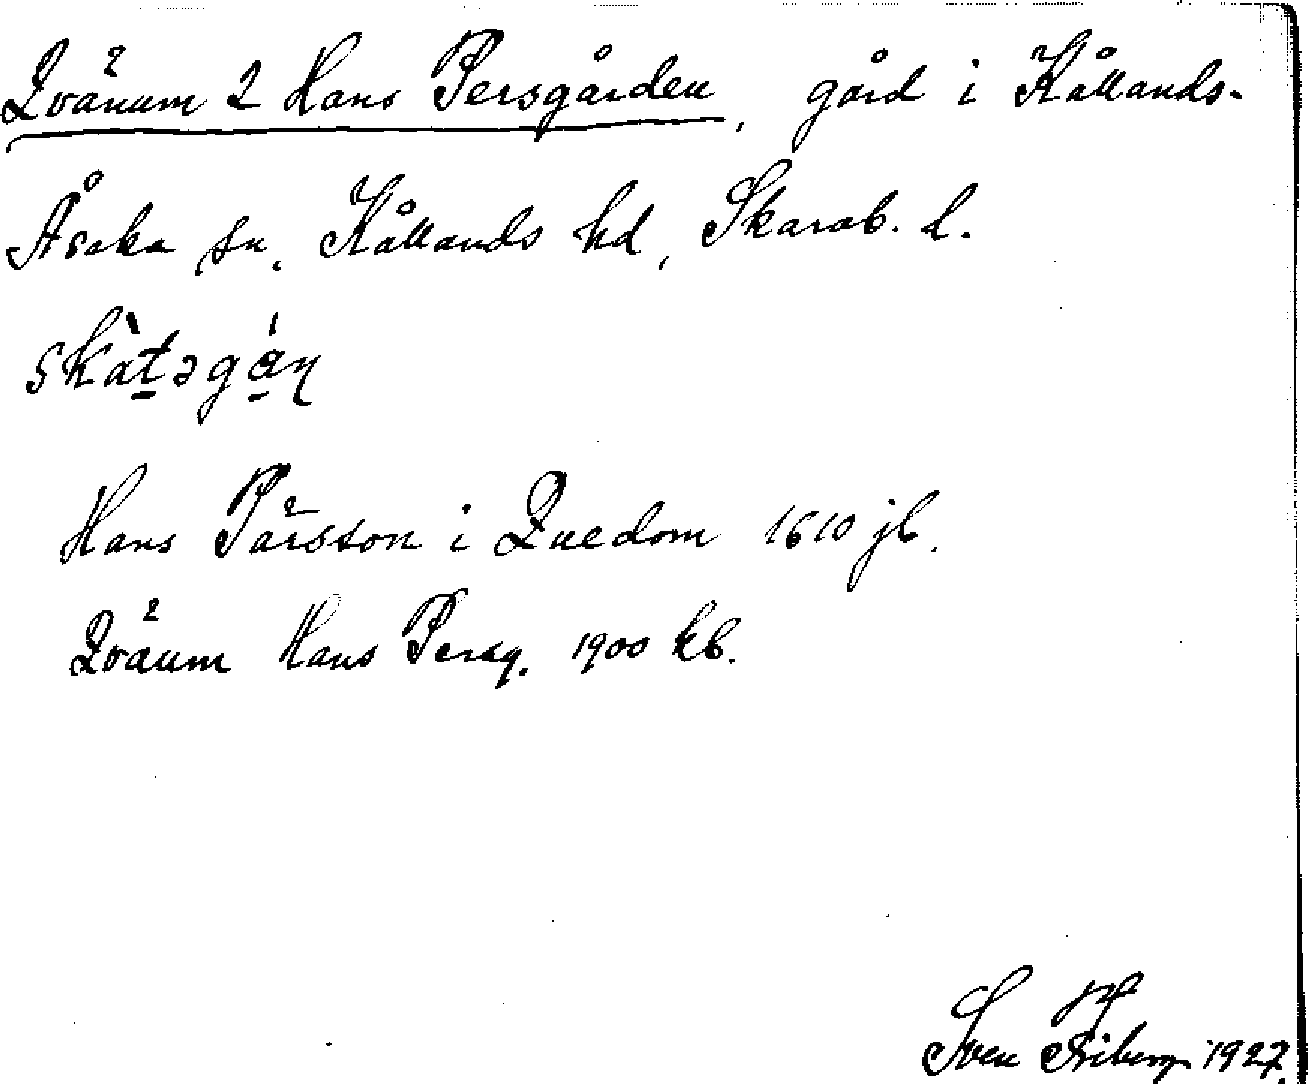 Qvänum 2 Hans Persgården, gård i Kållands-
Åsaka sn, Kållands hd, Skarab. l.
skàtəgán
Hans Pärsson i Quedom 1610 jb.
Qväum Hans Persg. 1900 kb.
Sven Friberg 1927.